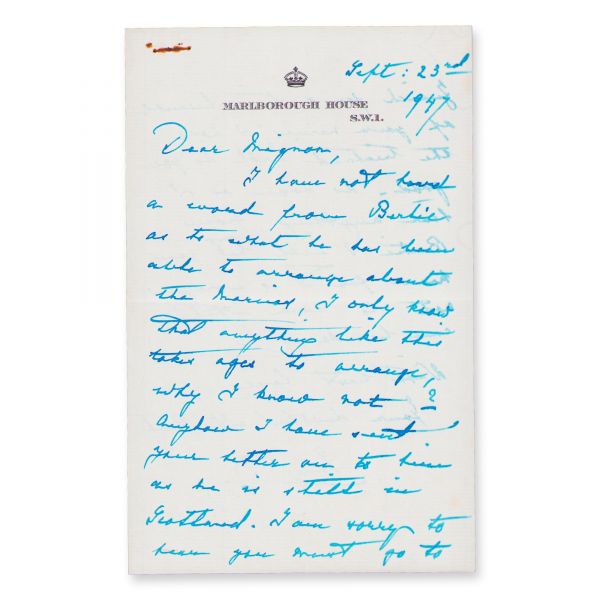 Sept: 23rd
1947
MARLBOROUGH HOUSE
S.W.1.
Dear Mignon,
I have not heard
a word from Bertie
as to what he has been
able to arrange about
the I only know
that anything like this
takes ages to arrange,
why I know not?
Anyhow I have sent
your letter on to him
as he is still in
Scotland. I am sorry to
hear you must go to